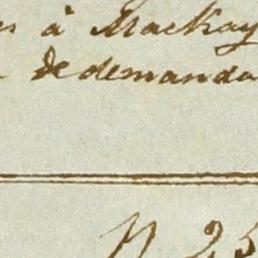 à Mackay
de demanda
N 25